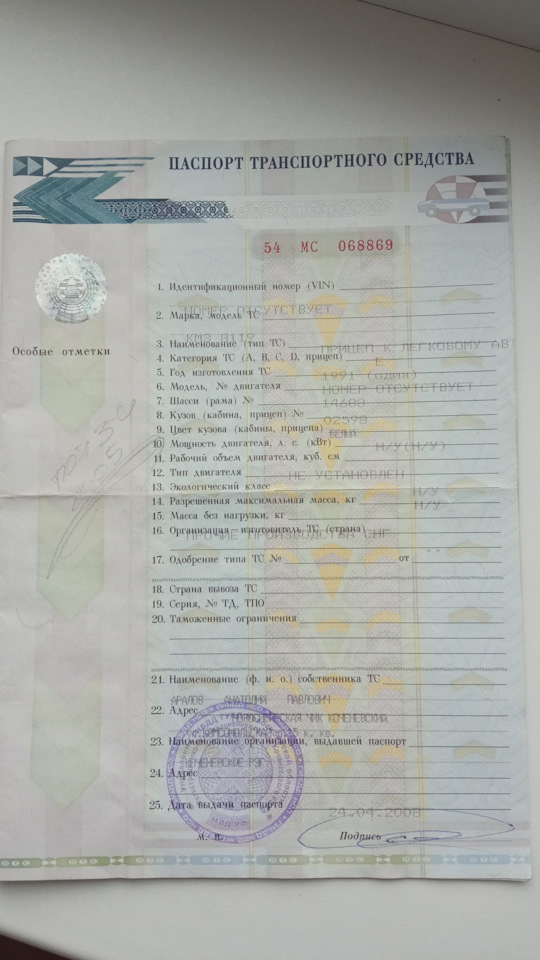 ПАСПОРТ ТРАНСПОРТНОГО СРЕДСТВА
54 МС 068869
1. Идентификационный номер (VIN)
НОМЕР ОТСУТСТВУЕТ
2. Марка, модель ТС
КМЗ 8119
3. Наименование (тип ТС) ПРИЦЕП К ЛЕГКОВОМУ АВТ
Особые отметки
4. Категория ТС (A, B, C, D, прицеп) E
5. Год изготовления ТС 1991 (ОДИН)
6. Модель, № двигателя НОМЕР ОТСУТСТВУЕТ
7. Шасси (рама) № 14688
8. Кузов (кабина, прицеп) № 02598
9. Цвет кузова (кабины, прицепа) БЕЛЫЙ
10. Мощность двигателя, л. с. (кВт) Н/У(Н/У)
11. Рабочий объем двигателя, куб. см
12. Тип двигателя НЕ УСТАНОВЛЕН
13. Экологический класс
14. Разрешенная максимальная масса, кг Н/У
15. Масса без нагрузки, кг Н/У
16. Организация–изготовитель ТС (страна)
ПРОЧИЕ ПРОИЗВОДСТВА СНГ
17. Одобрение типа ТС № от " "
18. Страна вывоза ТС
19. Серия, № ТД, ТПО
20. Таможенные ограничения
21. Наименование (ф. и. о.) собственника ТС
АРАЛОВ АНАТОЛИЙ ПАВЛОВИЧ
22. Адрес
ЧИК КОЧЕНЕВСКИЙ
к. кв.
23. Наименование организации, выдавшей паспорт
КОЧЕНЕВСКОЕ РЭГ
24. Адрес
25. Дата выдачи паспорта 24.04.2008
М. П. Подпись